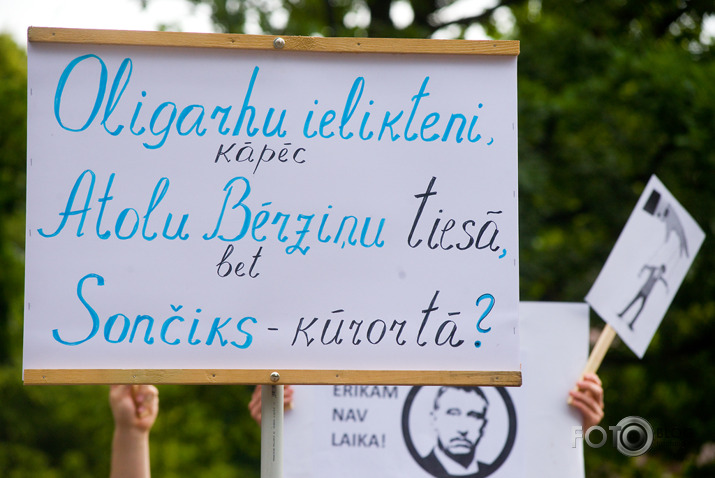 Oligarhu ielikteni,
kāpēc
Atolu Bērziņu tiesā,
bet
Sončiks - kūrortā?
ERIKAM
NAV
LAIKA!
FOTO